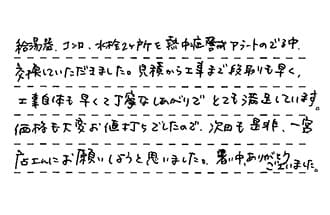 給湯器、コンロ、水栓2ヶ所を熱中症警戒アラートのでる中、
交換していただきました。見積から工事まで段取りも早く、
工事自体も早くて丁寧なしあがりでとても満足しています。
価格も大変お値打ちでしたので、次回も是非、一宮
店さんにお願いしようと思いました。暑い中、ありがとう
ございました。